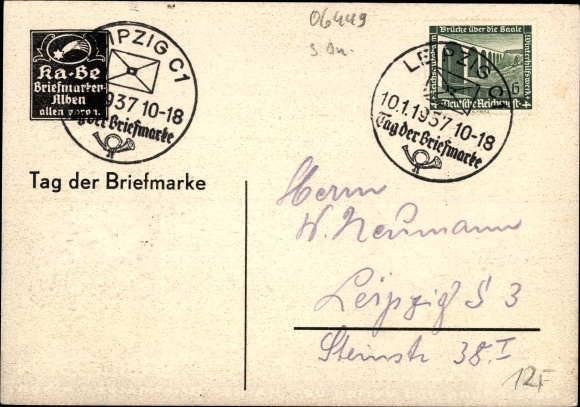 06449
Ka-Be
Briefmarken
Alben
allen voran
LEIPZIG C1
1937 10-18
der Briefmarke
Brücke über die Saale
Winterhilfswerk
6 4
Deutsches Reich
LEIPZIG C1
10.1.1937 10-18
Tag der Briefmarke
Tag der Briefmarke
Herrn
W. Neumann
Leipzig S 3
Steinstr 38 I
12F